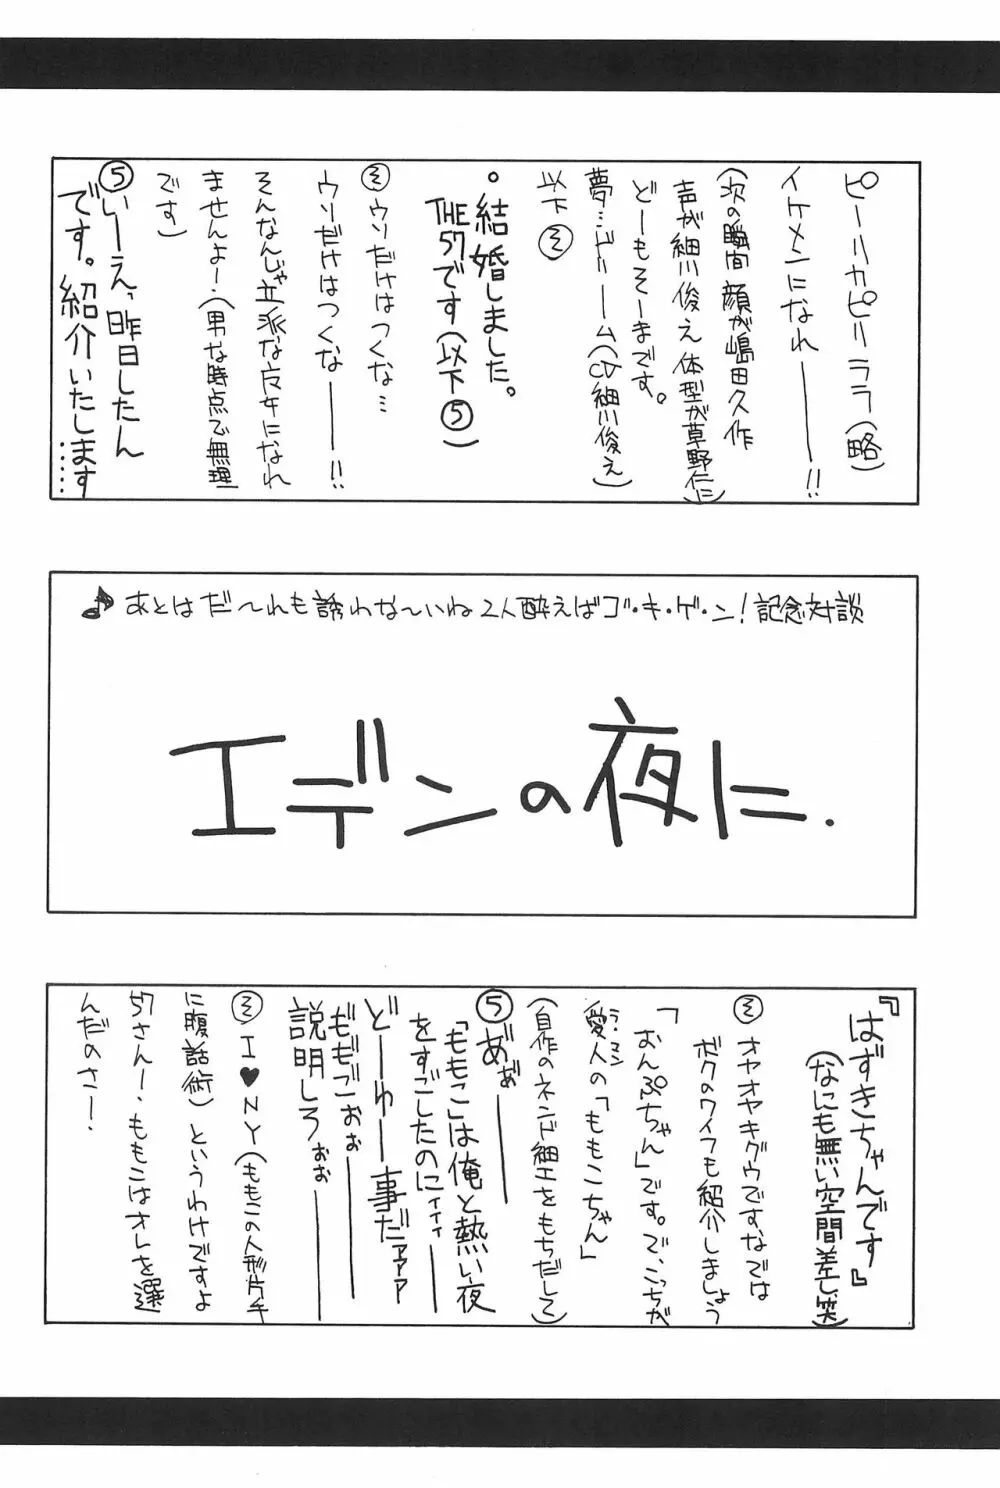 ピーリカピリララ(略)
イケメンになれ———!!
(次の瞬間 顔が嶋田久作
声が細川俊え 体型が草野仁に)
どーもそーまです。
夢…ドリーム(CV細川俊え)
以下そ
。結婚しました。
THE57です(以下5)
そウソだけはつくな…
ウソだけはつくな———!!
そんなんじゃ立派な女になれ
ませんよー.(男な時点で無理
です)
5いーえ、昨日したん
です。紹介いたします……
♪あとはだ〜れも誘わな〜いね2人酔えばゴ・キ・ゲ・ン!記念対談
エデンの夜に.
『はずきちゃんです』
(なにも無い空間差し笑)
そオヤオヤキグウですな。では
ボクのワイフも紹介しましょう
「おんぷちゃん」です。で、こっちが
愛人の「ももこちゃん」
ラ・マン
(自作のネンド細工をもちだして)
5あ゛ぁ゛———
「ももこ」は俺と熱い夜
をすごしたのにィィィ——
どーゆー事だァァァ
ももごぉぉ———
説明しろぉぉ———
そI♥NY(ももこの人形片手
に腹話術)というわけですよ
57さん!ももこはオレを選
んだのさー!